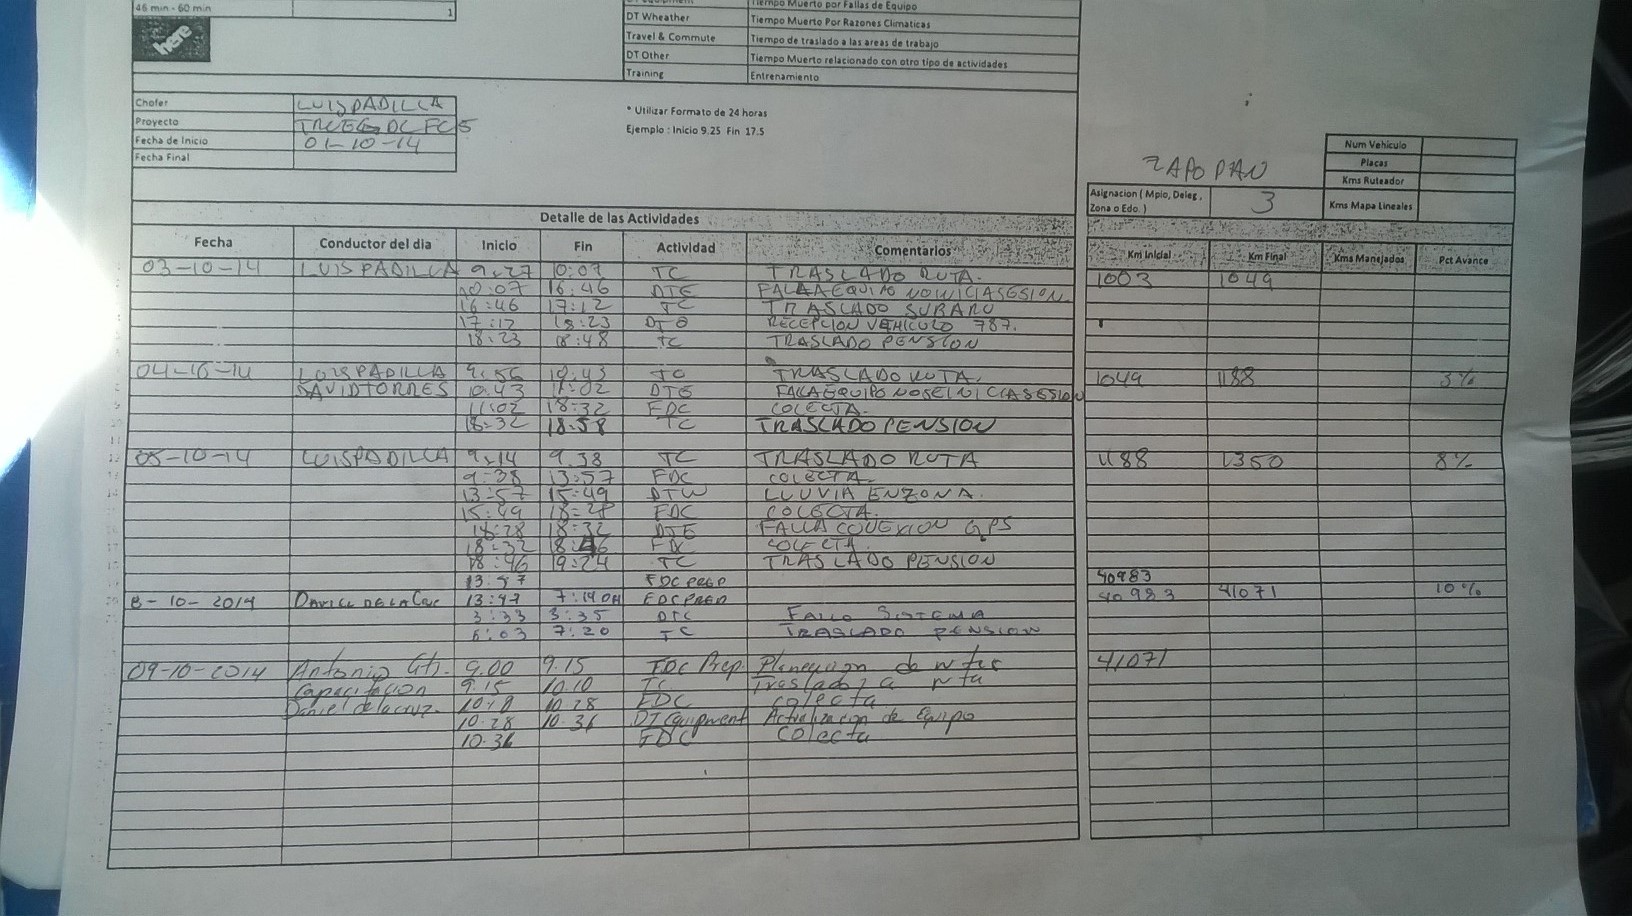 46 min - 60 min 1
here
DT Equipment Tiempo Muerto por Fallas de Equipo
DT Wheather Tiempo Muerto Por Razones Climaticas
Travel & Commute Tiempo de traslado a las areas de trabajo
DT Other Tiempo Muerto relacionado con otro tipo de actividades
Training Entrenamiento
Chofer LUIS PADILLA
Proyecto TRUE DC FC 5
Fecha de Inicio 01-10-14
Fecha Final
* Utilizar Formato de 24 horas
Ejemplo : Inicio 9.25 Fin 17.5
ZAPOPAN
Num Vehiculo
Placas
Kms Ruteador
Kms Mapa Lineales
Asignacion ( Mpio, Deleg, Zona o Edo. ) 3
Detalle de las Actividades
Fecha Conductor del dia Inicio Fin Actividad Comentarios Km Inicial Km Final Kms Manejados Pct Avance
03-10-14 LUIS PADILLA 9:27 10:07 TC TRASLADO RUTA. 1003 1049
10:07 16:46 DTE FALLA EQUIPO NO INICIA SESION
16:46 17:12 TC TRASLADO SUBARU
17:12 18:23 DTO RECEPCION VEHICULO 787.
18:23 18:48 TC TRASLADO PENSION
04-10-14 LUIS PADILLA 9:56 10:43 TC TRASLADO RUTA. 1049 1188 3%
DAVID TORRES 10:43 11:02 DTE FALLA EQUIPO NO SE INICIA SESION
11:02 18:32 FDC COLECTA.
18:32 18:58 TC TRASLADO PENSION
05-10-14 LUIS PADILLA 9:14 9.38 TC TRASLADO RUTA 1188 1350 8%
9:38 13:57 FDC COLECTA.
13:57 15:49 DTW LLUVIA EN ZONA.
15:49 18:28 FDC COLECTA.
18:28 18:32 DTE FALLA CONEXION GPS
18:32 18:46 FDC COLECTA.
18:46 19:24 TC TRASLADO PENSION
13:57 FDC PREP 40983
8-10-2014 13:47 FDC PREP 40983 41071 10%
3:33 3:35 DTE FALLO SISTEMA
6:03 7:20 TC TRASLADO PENSION
09-10-2014 Antonio 9.00 9.15 FDC Prep. Planeacion de rutas 41071
Capacitacion 9.15 10.10 TC Traslado a ruta
Daniel de la cruz. 10:10 10.28 FDC colecta
10:28 10.36 DT Equipment Actualizacion de Equipo
10.36 FDC Colecta